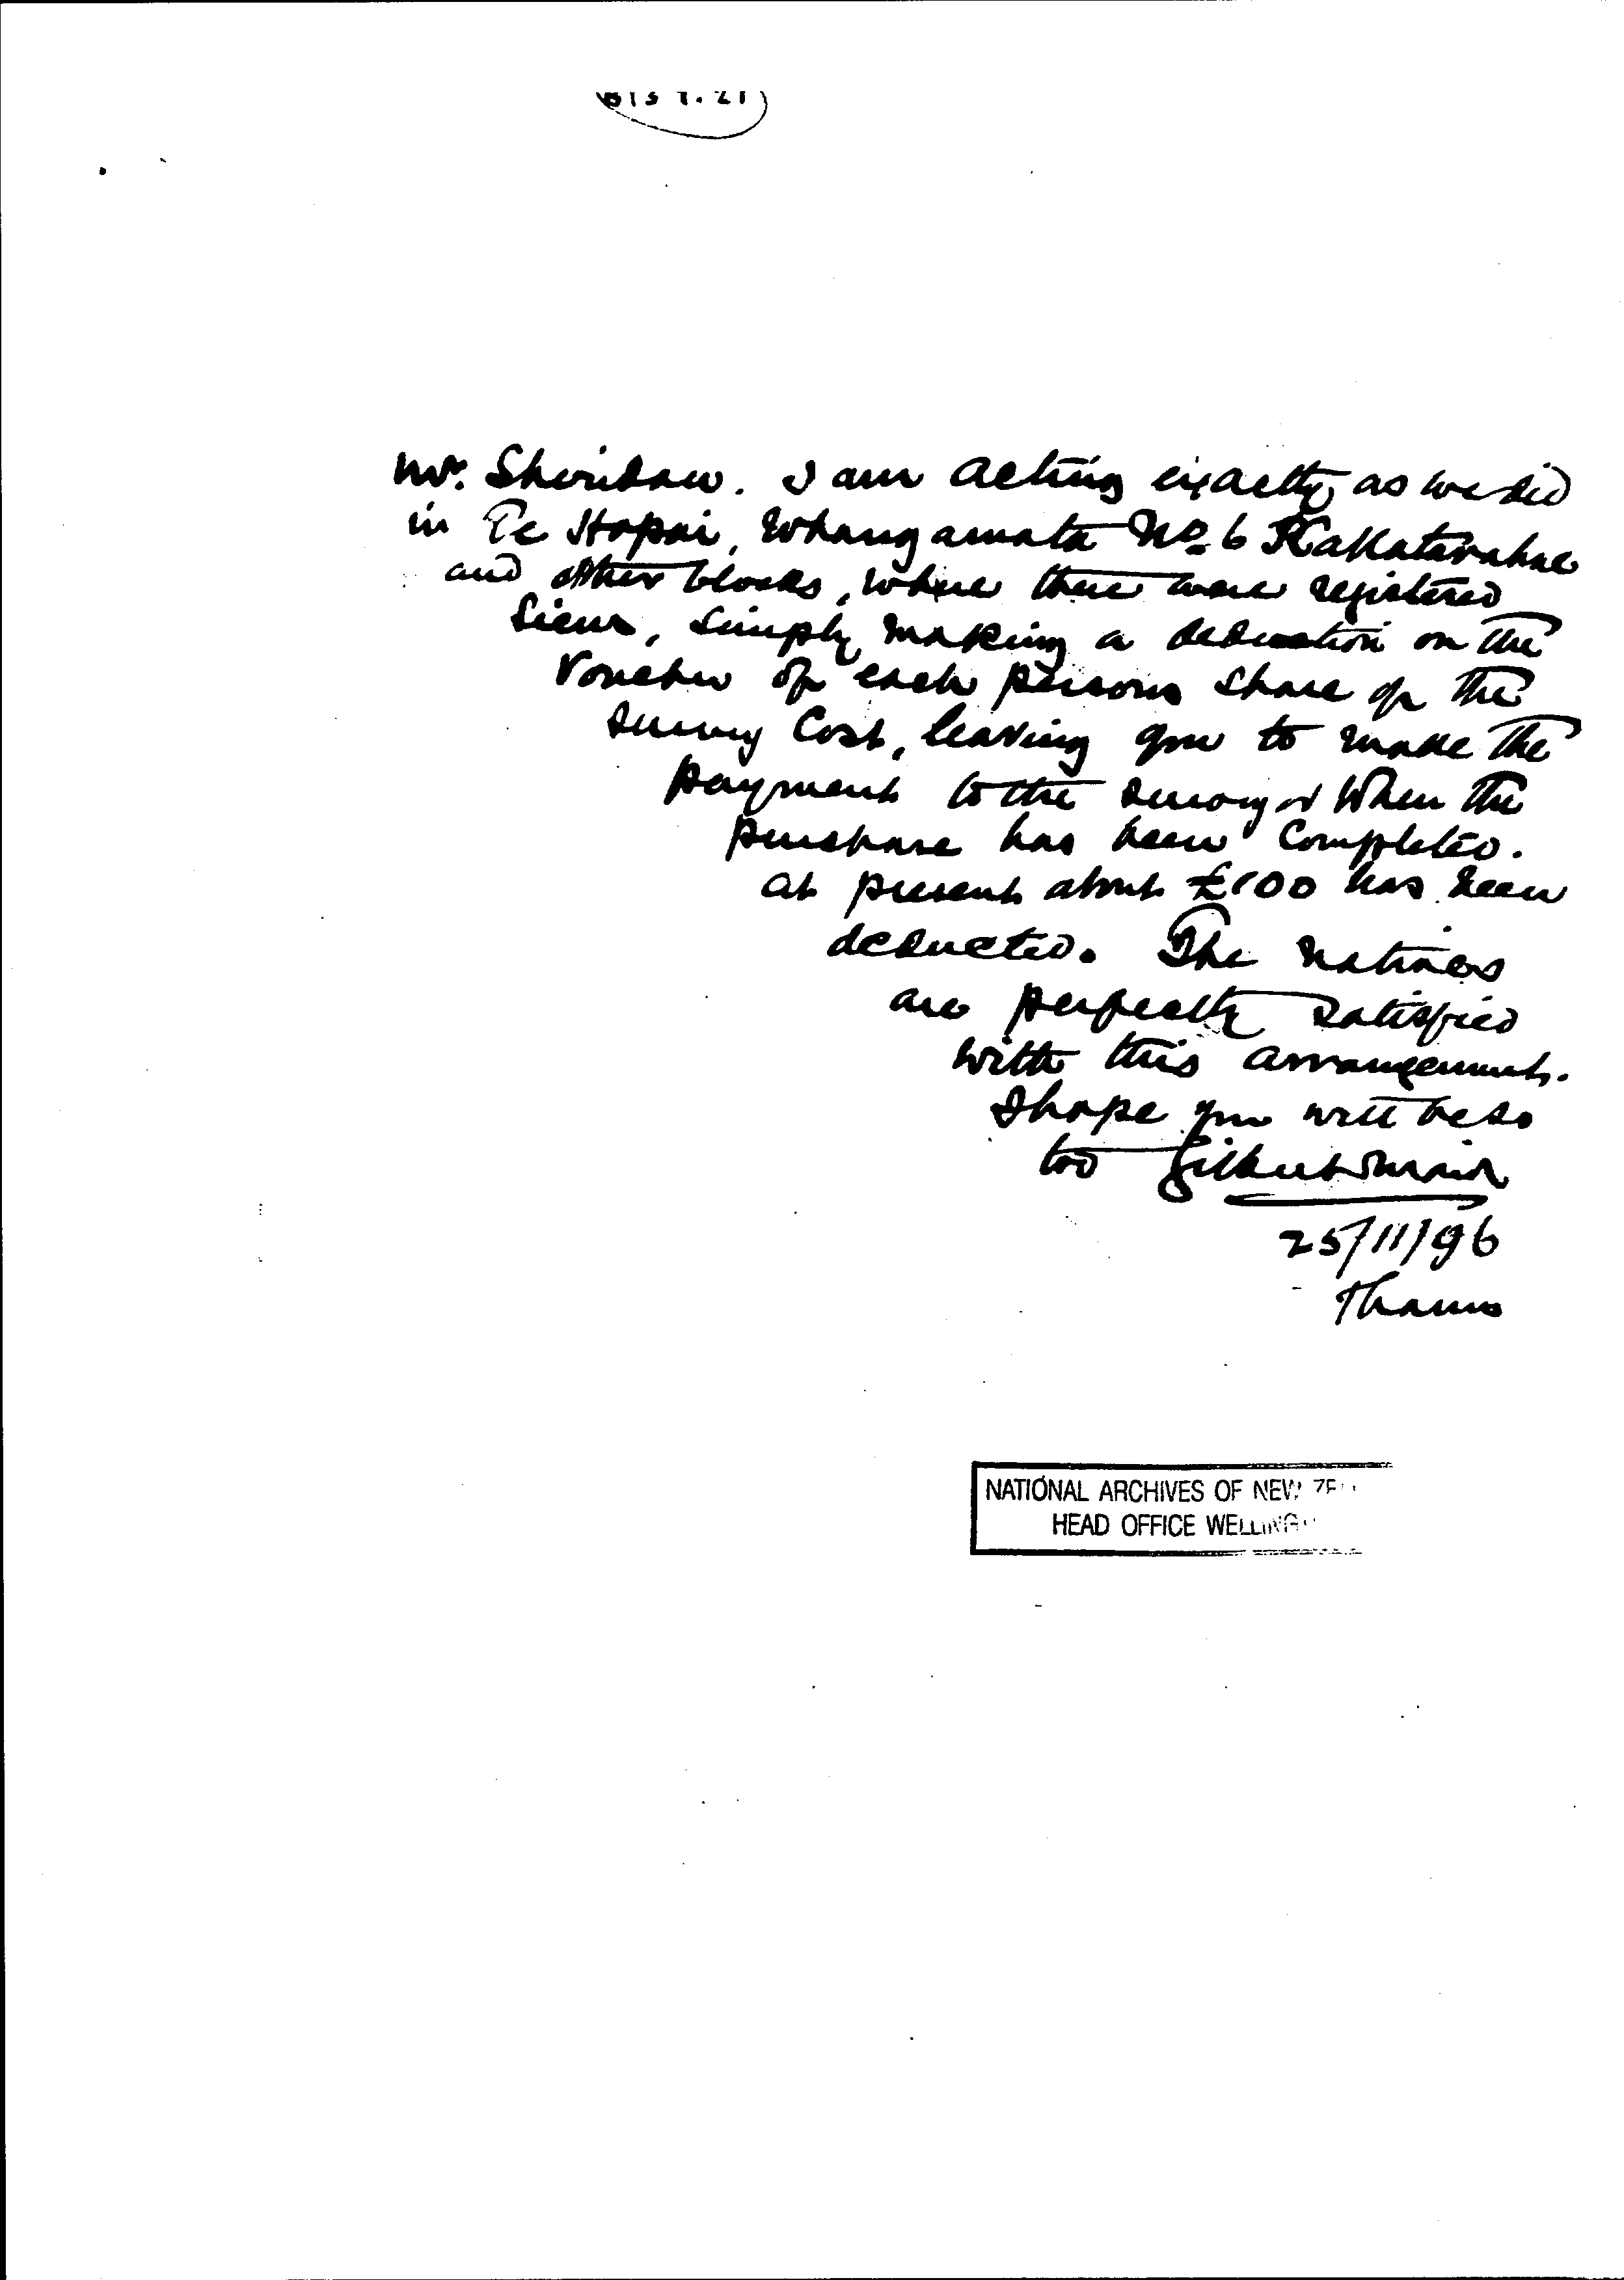 Mr. Sheridan. I am acting exactly as we did
in Te Hopai, Whangamata No. 6 Kakatarahae
and other blocks, where there were registered
liens, simply making a deduction on the
voucher of each persons share of the
survey cost, leaving you to make the
payment to the surveyor when the
purchase has been completed.
at present about £100 has been
deducted. The natives
are perfectly satisfied
with this arrangement.
I hope you will be so
too Gilbert Mair
25/11/96
Thames
NATIONAL ARCHIVES OF NEW
HEAD OFFICE